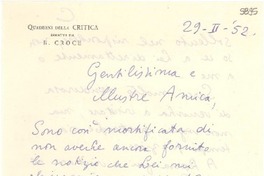 5895
QUADERNI DELLA CRITICA
DIRETTI DA
B. CROCE
29-II-'52.
Gentilissima e
Illustre Amica,
Sono così mortificata di
non averle ancora fornito
le notizie che Lei mi